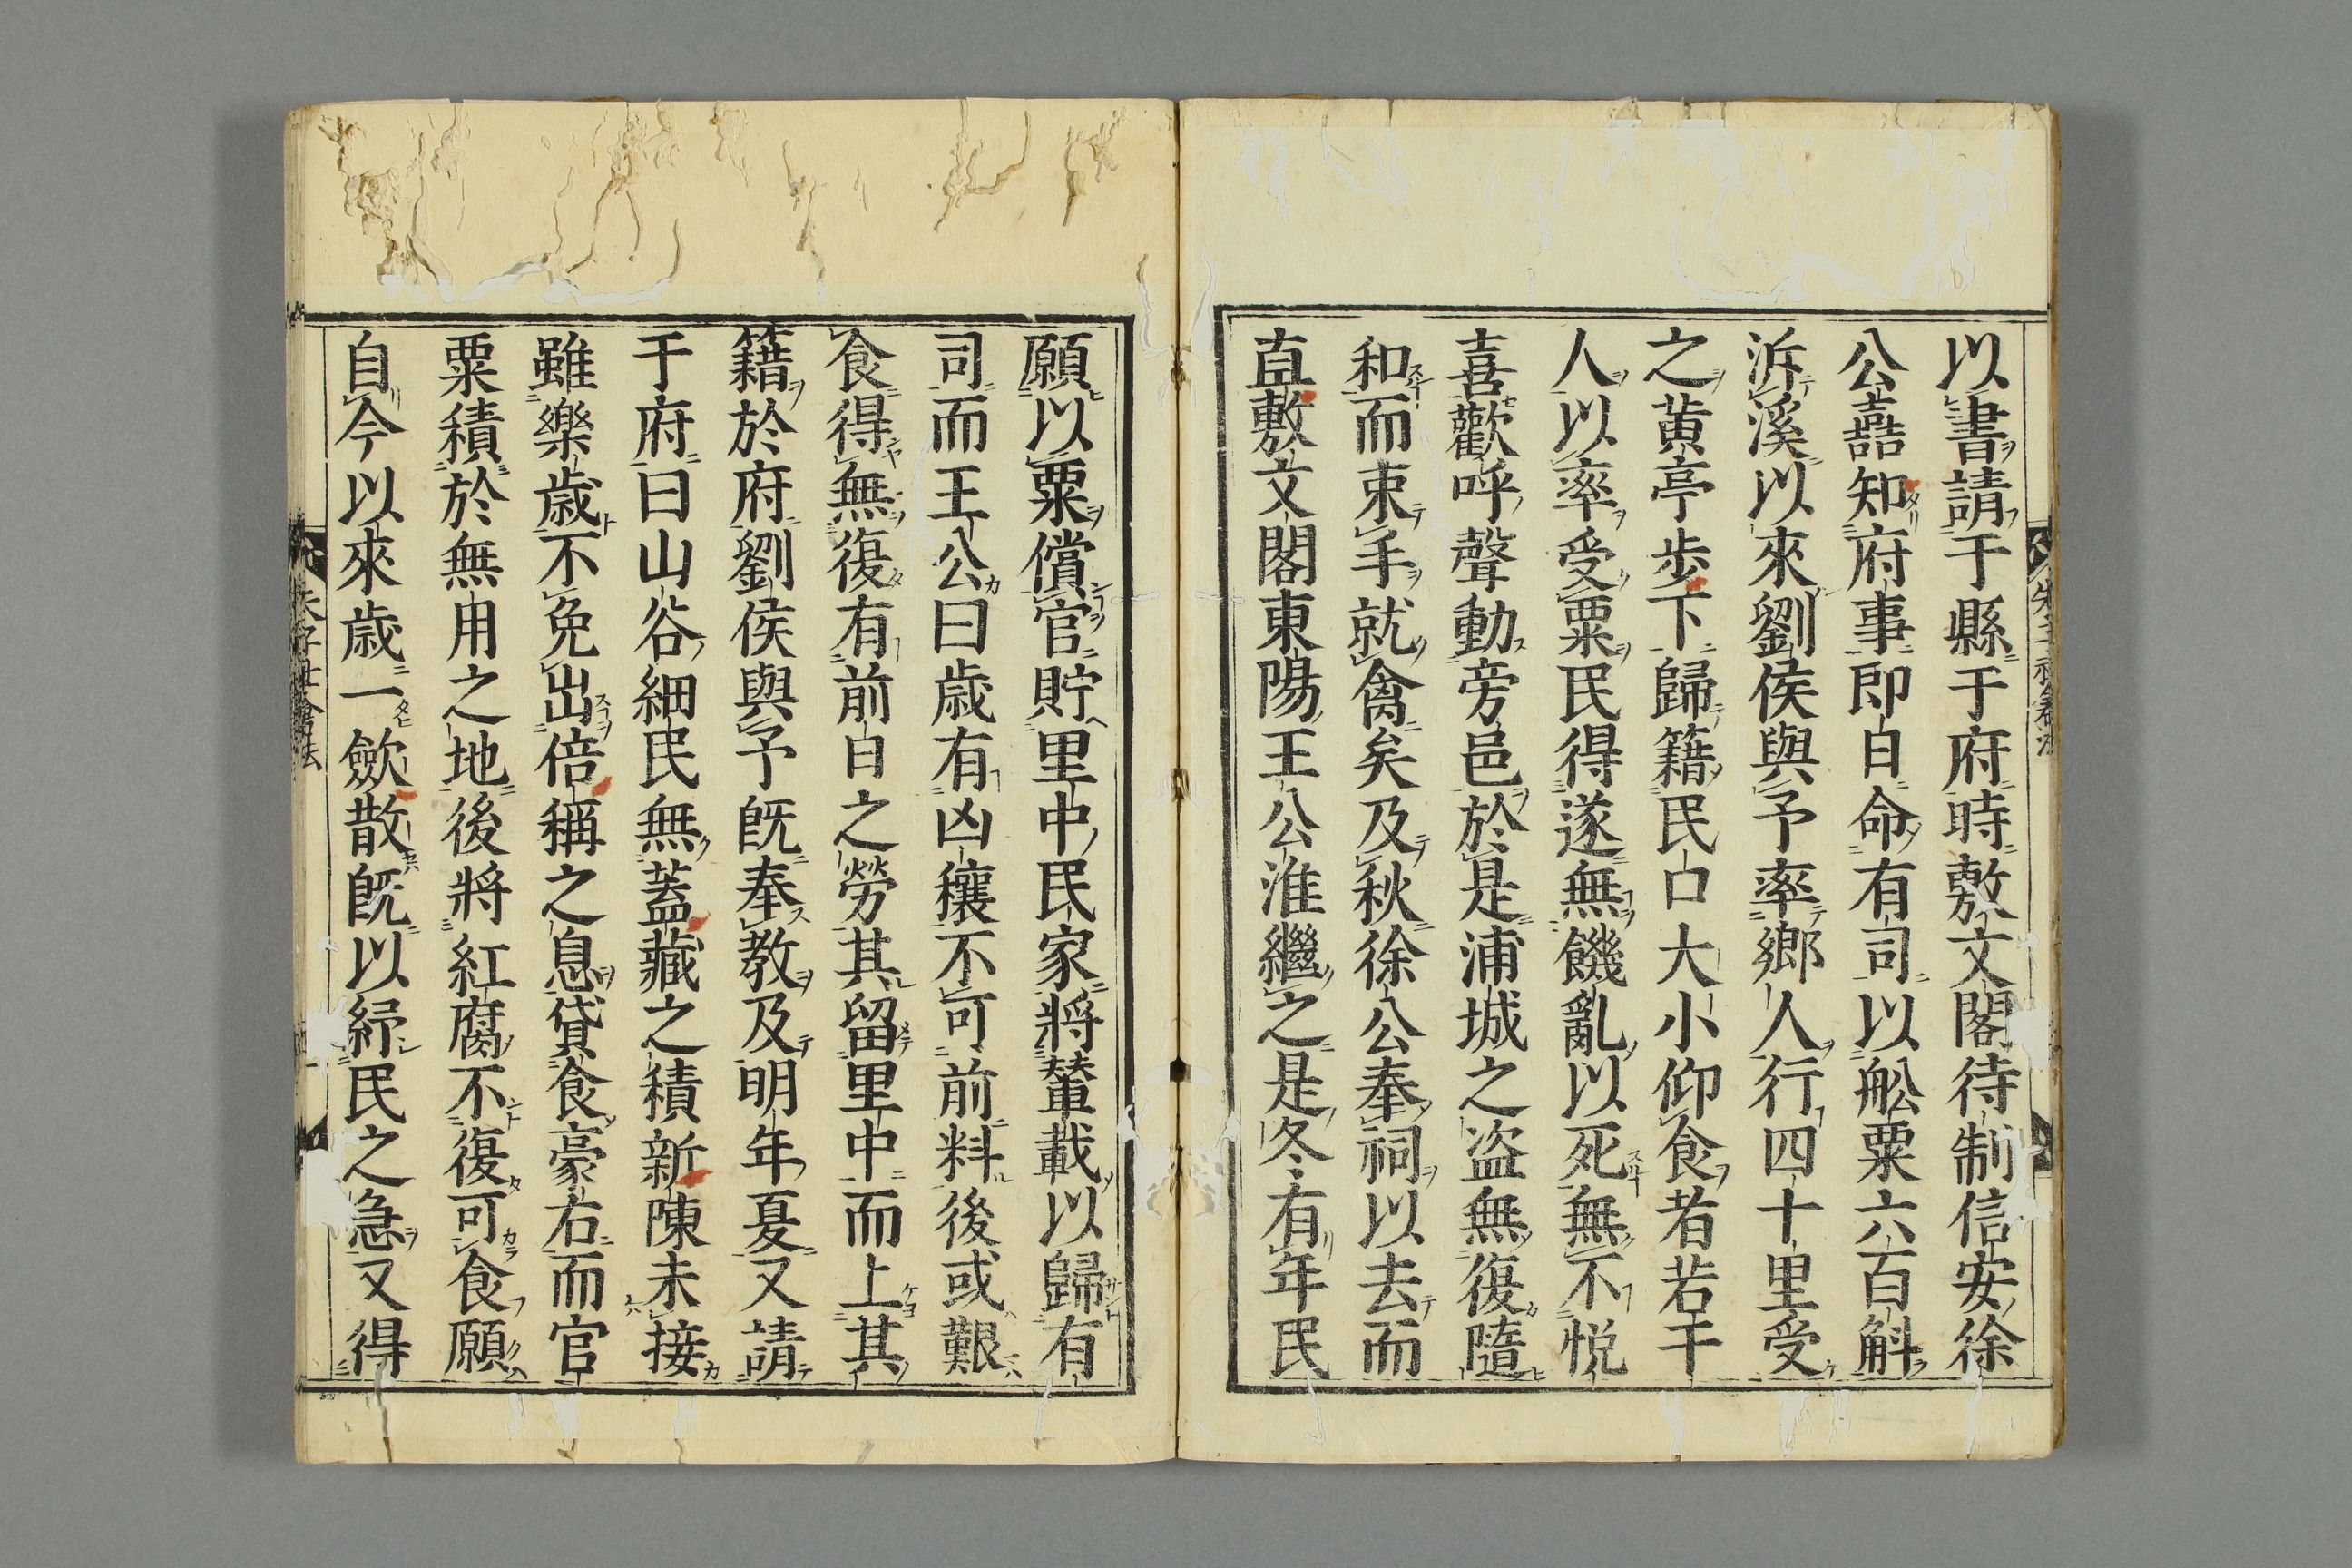 以書請于縣于府時敷文閣待制信安徐
公嚞知府事即日命有司以舩粟六百斛
泝溪以來劉侯與予率鄉人行四十里受
之黄亭歩下歸籍民口大小仰食者若干
人以率受粟民得遂無饑亂以死無不悦
喜歡呼聲動旁邑於是浦城之盗無復隨
和而束手就禽矣及秋徐公奉祠以去而
直敷文閣東陽王公淮繼之是冬有年民
願以粟償官貯里中民家將輦載以歸有
司而王公曰歳有凶穰不可前料後或艱
食得無復有前日之勞其留里中而上其
籍於府劉侯與予既奉教及明年夏又請
于府曰山谷細民無蓋藏之積新陳未接
雖樂歳不免出倍稱之息貸食豪右而官
粟積於無用之地後將紅腐不復可食願
自今以來歳一歛散既以紓民之急又得
朱子社倉法